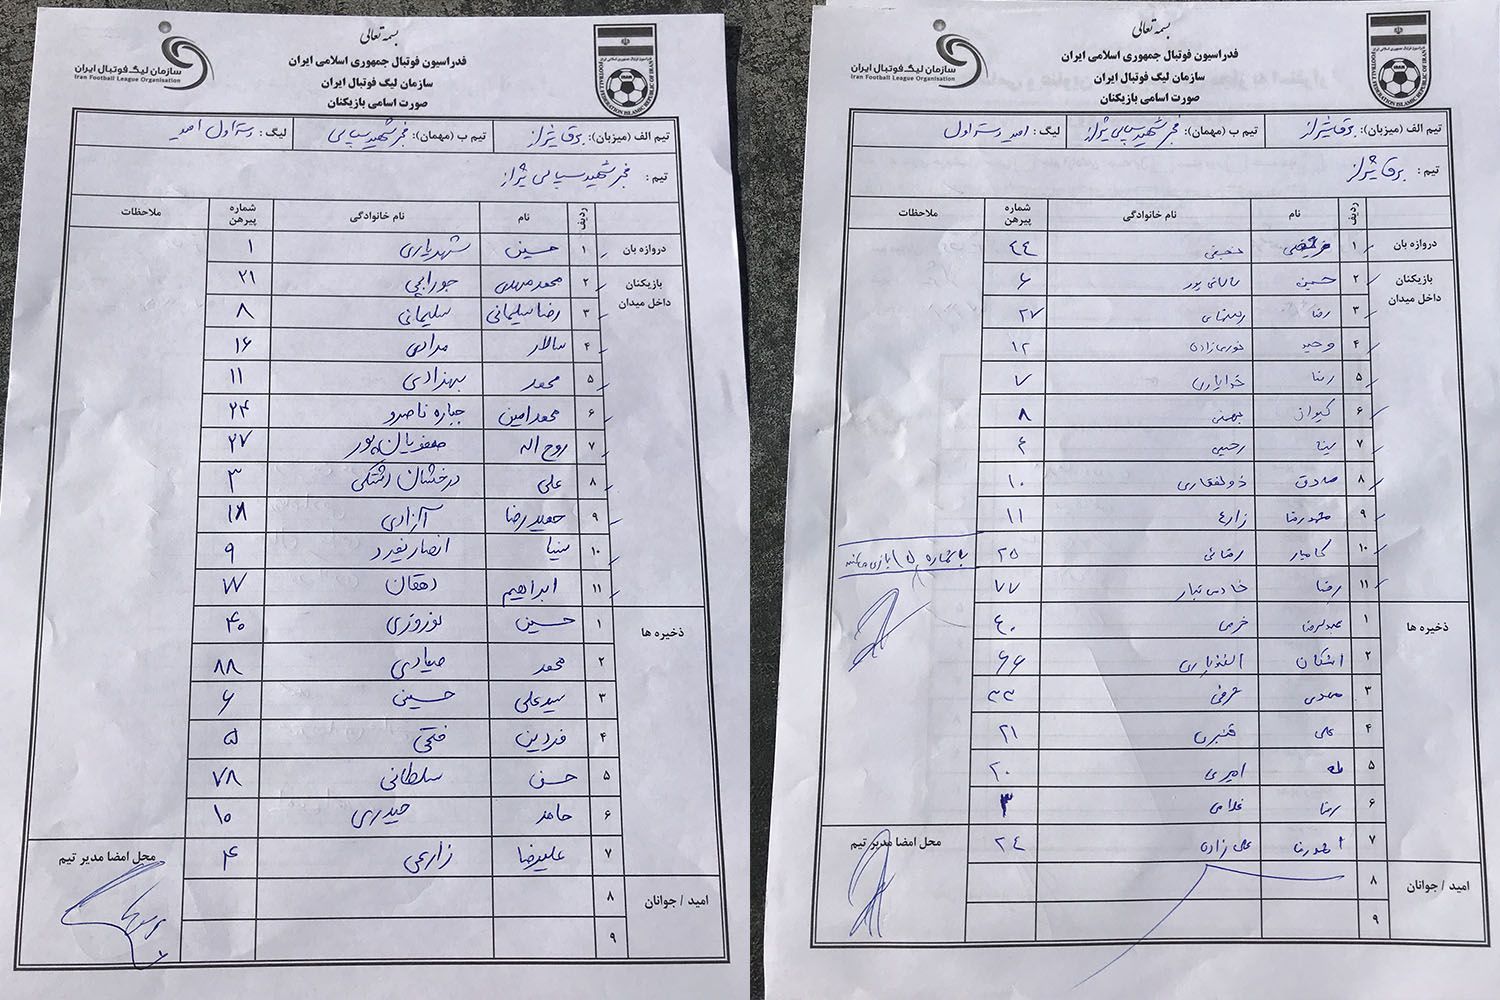 بسمه تعالی
فدراسیون فوتبال جمهوری اسلامی ایران
سازمان لیگ فوتبال ایران
صورت اسامی بازیکنان
سازمان لیگ فوتبال ایران
Iran Football League Organisation
تیم الف (میزبان): برق شیراز تیم ب (مهمان): فجر شهید سپاسی لیگ: دسته اول امید
تیم: فجر شهید سپاسی شیراز
ردیف نام نام خانوادگی شماره پیرهن ملاحظات
دروازه بان ۱ حسین شهریاری ۱
بازیکنان داخل میدان ۲ محمدمهدی جورابچی ۲۱
۳ رضا سلیمانی سلیمانی ۸
۴ سالار ۱۶
۵ محمد بهزادی ۱۱
۶ محمدامین جباره ناصرو ۲۴
۷ روح اله صفویان پور ۲۷
۸ علی درخشان ۳
۹ حمیدرضا آزادی ۱۸
۱۰ سینا انصاریفرد ۹
۱۱ ابراهیم دهقان ۷۷
ذخیره ها ۱ حسین نوروزی ۴۰
۲ محمد صیادی ۸۸
۳ سیدعلی حسینی ۶
۴ فردین فتحی ۵
۵ حسن سلطانی ۷۸
۶ حامد حیدری ۱۰
۷ علیرضا زارعی ۴
محل امضا مدیر تیم
امید / جوانان ۸
۹
بسمه تعالی
فدراسیون فوتبال جمهوری اسلامی ایران
سازمان لیگ فوتبال ایران
صورت اسامی بازیکنان
سازمان لیگ فوتبال ایران
Iran Football League Organisation
تیم الف (میزبان): برق شیراز تیم ب (مهمان): فجر شهید سپاسی شیراز لیگ: امید دسته اول
تیم: برق شیراز
ردیف نام نام خانوادگی شماره پیرهن ملاحظات
دروازه بان ۱ ۴۴
بازیکنان داخل میدان ۲ حسین ۶
۳ رضا ۲۷
۴ وحید ۱۲
۵ رضا خدایاری ۷
۶ کیوان بهمنی ۸
۷ سینا رحیمی ۴
۸ صادق ذوالفقاری ۱۰
۹ محمدرضا زارع ۱۱
۱۰ کامیار رضائی ۲۵ با شماره ۱۵ بازی
۱۱ رضا خادمی تبار ۷۷
ذخیره ها ۱ عبدالرضا خرمی ۴۰
۲ اشکان ۶۶
۳ مهدی شرفی ۳۳
۴ علی قنبری ۲۱
۵ طه امیری ۲۰
۶ رضا غلامی ۳
۷ احمدرضا علی زاده ۲۴
محل امضا مدیر تیم
امید / جوانان ۸
۹